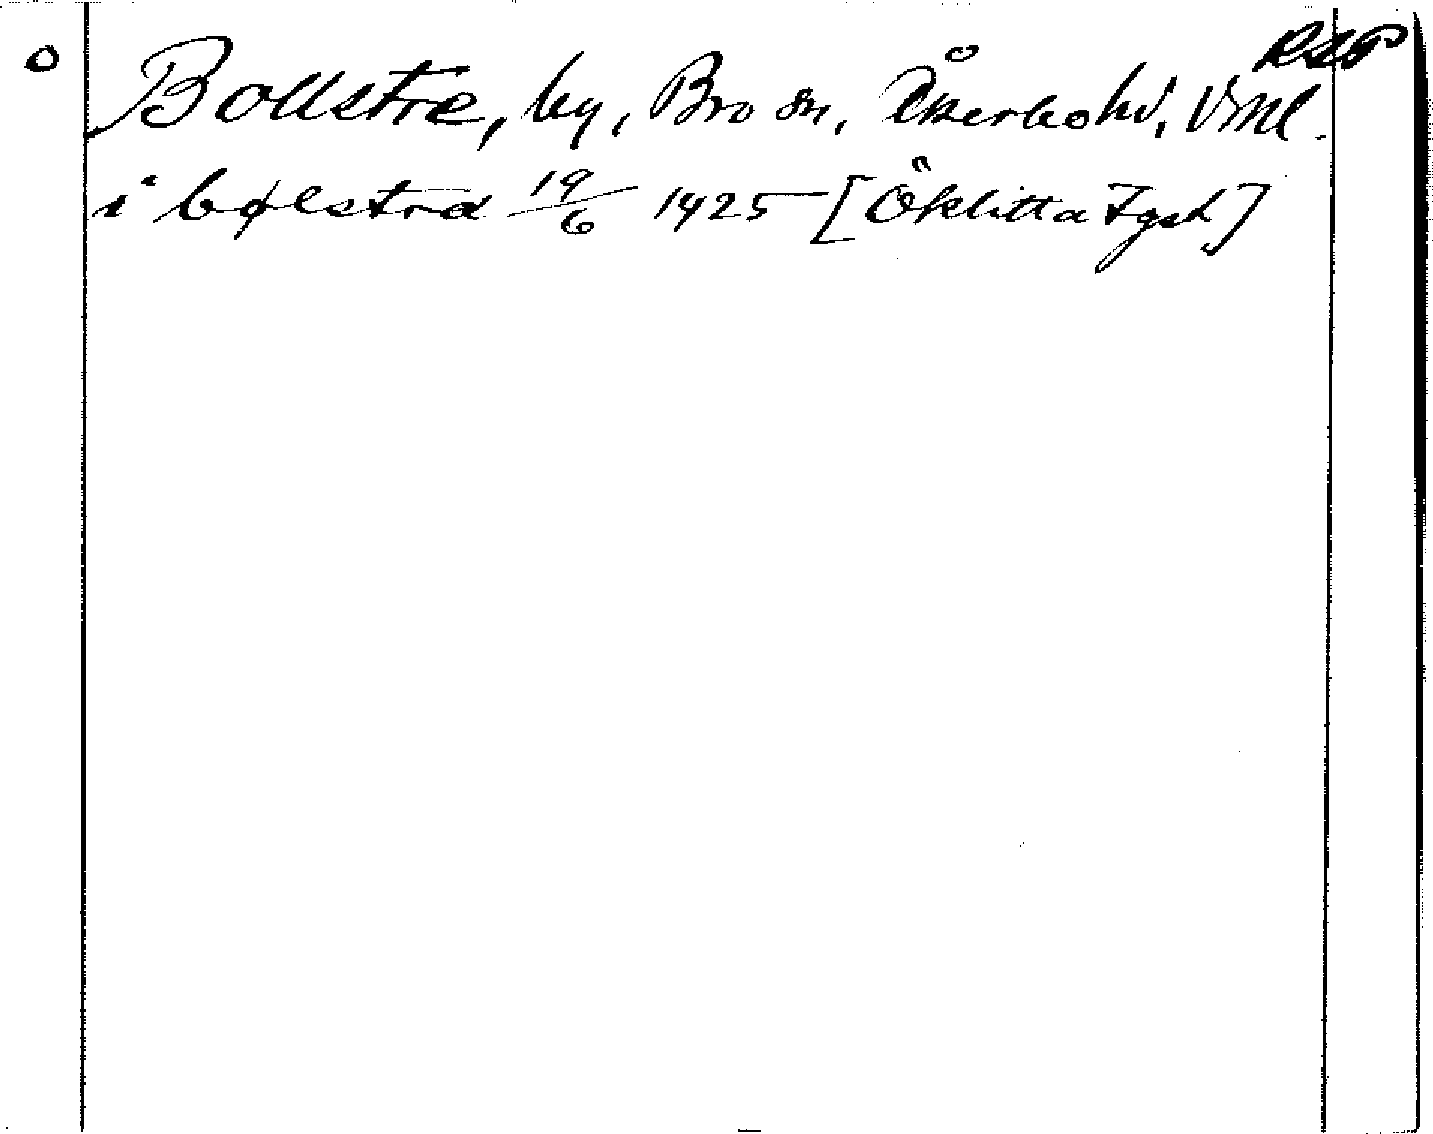 o
Bollstre, by, Bro sn, Åkerbo hd, Vml.
i bølstra 19/6 1425 [Öklitta Fgsh]